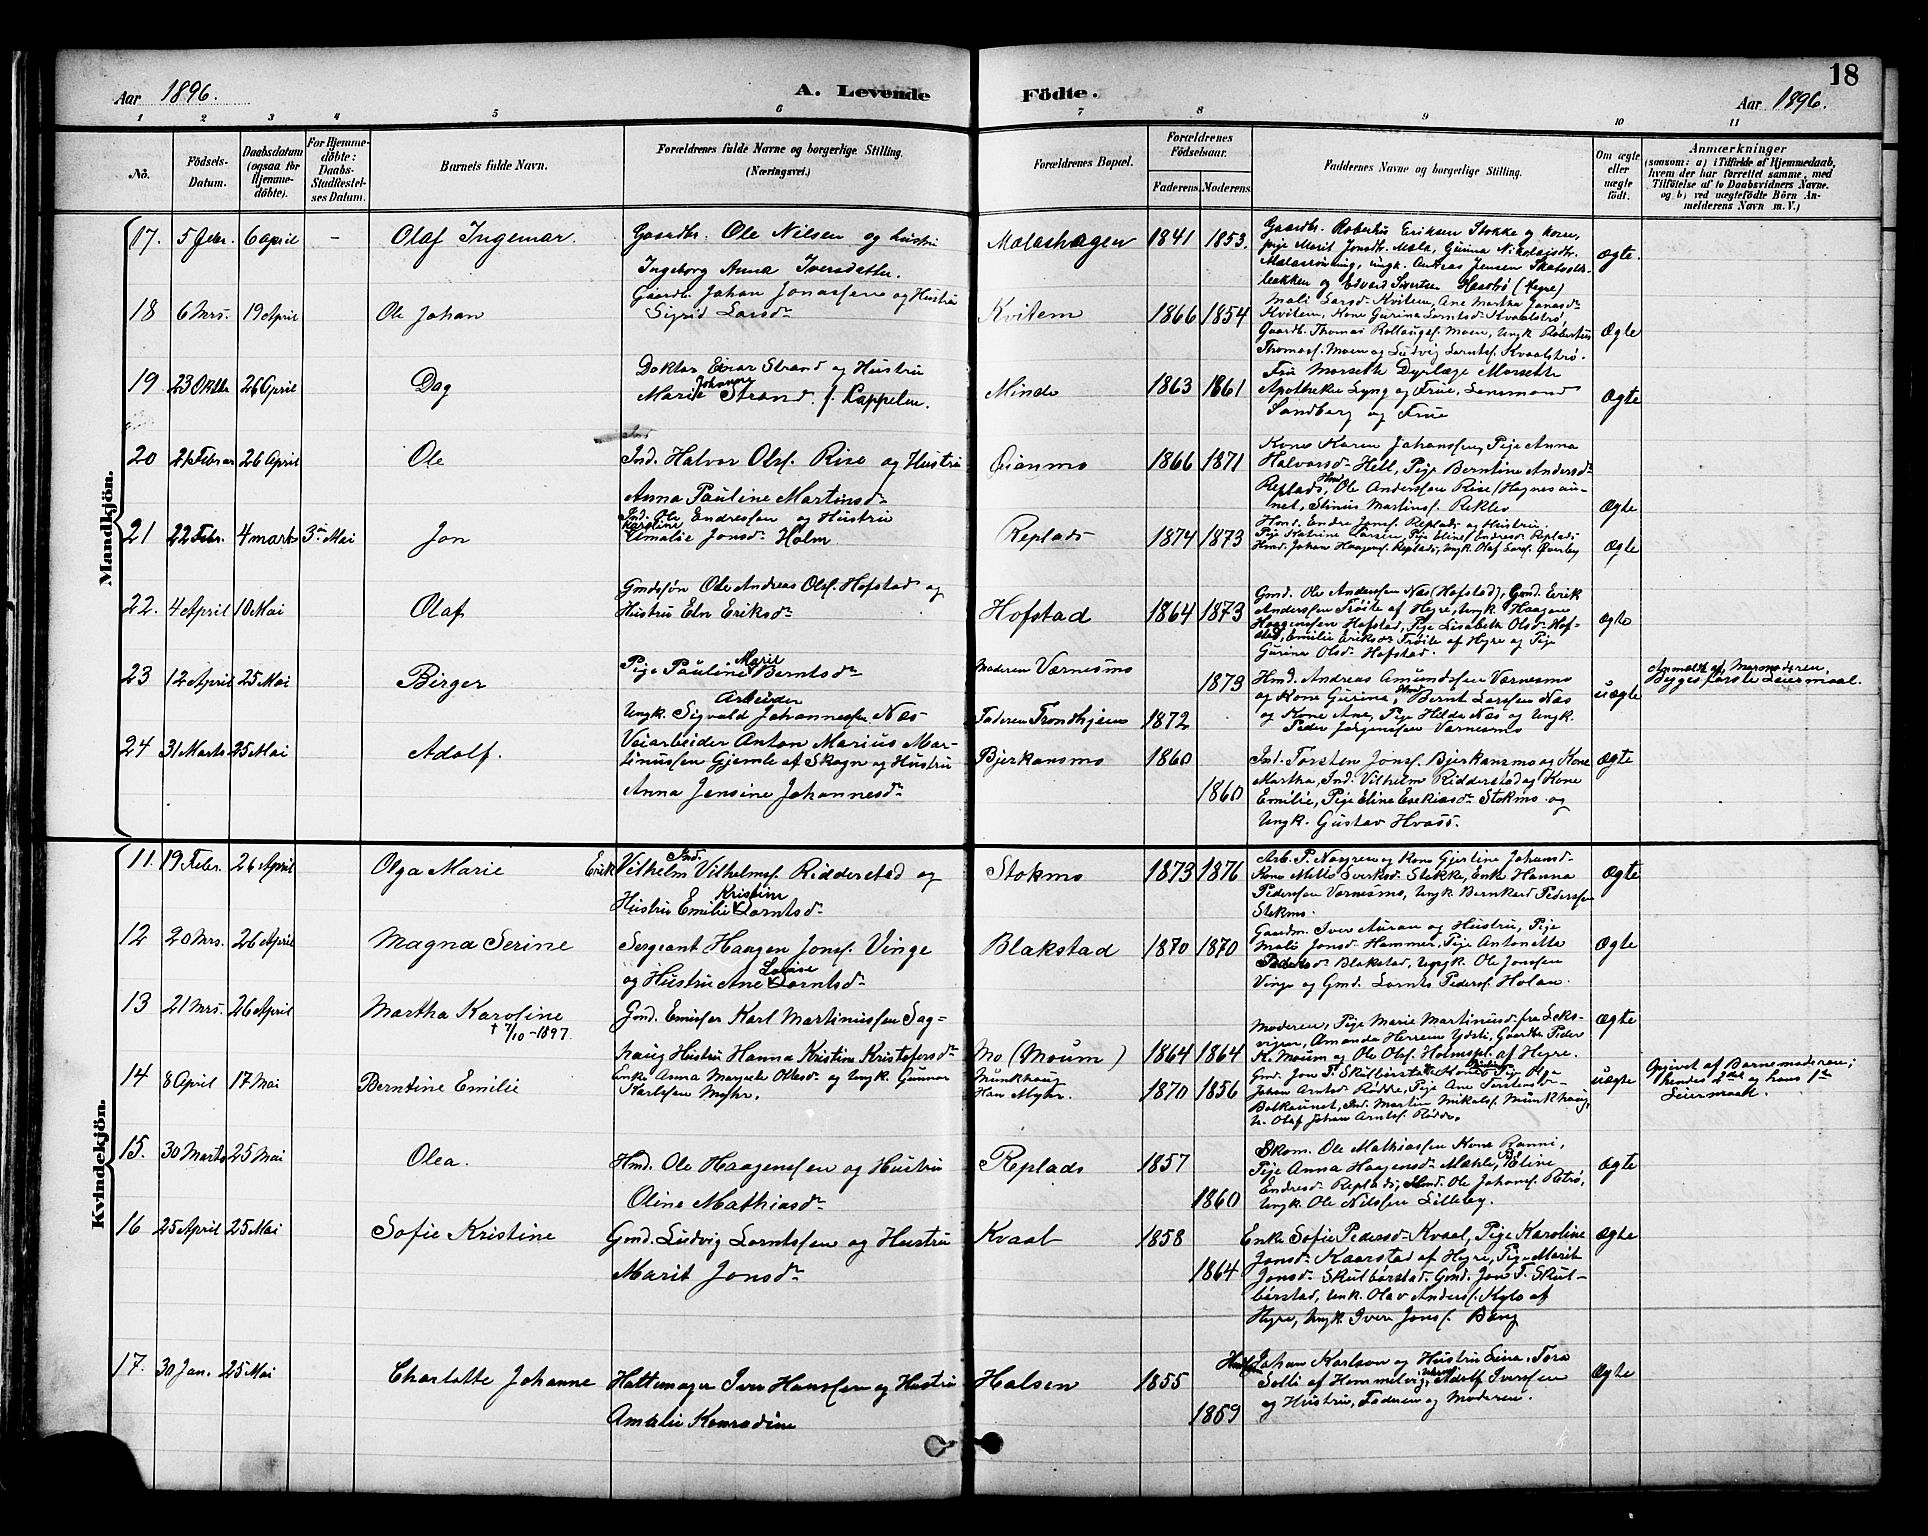 18
Aar 1896.
A. Levende Födte.
Aar 1896.
1 2 3 4 5 6 7 8 9 10 11
No.
Födsels-Datum.
Daabsdatum (ogsaa for Hjemme-döbte).
For Hjemme-döbte: Daabs-Stadfæstel-ses Datum.
Barnets fulde Navn.
Forældrenes fulde Navne og borgerlige Stilling. (Næringsvei.)
Forældrenes Bopæl.
Forældrenes Födselsaar.
Faderens Moderens
Faddernes Navne og borgerlige Stilling.
Om ægte eller uægte födt.
Anmærkninger
(saasom: a) i Tilfælde af Hjemmedaab,
hvem der har forrettet samme, med
Tilföielse af to Daabsvidners Navne,
og b) ved uægtefödte Börn An-
melderens Navn m. V.)
Mandkjön.
17. 5 Febr. 6 april - Olaf Ingemar.
Gaardbr. Ole Nilsen og hustru
Ingeborg Anna Iversdatter.
Malashagen 1841 1853.
Gaardbr. Robertus Eriksen Stokke og kone,
pige Marit Jonsdtr. Mæla, Gurina Nikolaisdtr.
ungk. Andreas Jensen
og Edvard Sivertsen (Hegre)
Ægte.
18 6 Mrs. 19 April Ole Johan
Gaardb. Johan Jonassen og Hustru
Sigrid Larsdr
Kvitem 1866 1854
Mali Larsdr Kvitem, Ane Martha Jonasdr
Kvitem, Kone Gurina Lorntsdr Kvaalstrø,
Gaardb. Thomas Rollaugsf. Moen, Ungk. Robertus
Thomasf. Moen og Ludvig Lorntsf. Kvaalstrø.
Ægte
19 23 Oktbr 26 April Dag
Doktor Einar Strand og Hustru
Marie Johanne Strand f. Cappelen.
Minde 1863 1861
Fru Morseth Dyrlæge Morseth
Apotheker Lyng og Frue, Lensmand
Sandberg og Frue
Ægte
20 21 Februar 26 April Ole
Ind. Halvor Olsf. Rise og Hustru
Anna Pauline Martinsdr
Øianmo 1866 1871
Kone Karen Johanssen, Pige Anna
Halvorsdr Hell, Pige Berntine Andersdr
Replads, Hmd. Ole Anderssen Rise (Hognesau-
net, Stinius Martinsf. Reklev
Ægte
21 22 Febr. 4 marts 3die Mai Jon
Ind. Ole Endressen og Hustru
Karoline Amalie Jonsdr Holm
Replads 1874 1873
Hmd. Endre Jonsf. Replads og Hustru.
Pige Katrine Larsen, Pige Eline Endresdr Replads
Hmd. Johan Haagensf. Replads, Ungk. Olaf Larsf. Øverby
Ægte
22. 4 April 10 Mai Olaf
Gmdssøn Ole Andreas Olsf. Hofstad og
Hustru Eln Eriksdr
Hofstad 1864 1873
Gmd. Ole Anderssen Næs (Hofstad), Gmd. Erik
Anderssen Trøite af Hegre, Ungk. Haagen
Haagenssen Hofstad, Pige Lisabeth Olsdr Hof-
stad, Emilie Eriksdr Trøite af Hegre og Pige
Gurina Olsdr Hofstad.
Ægte
23 12 April 25 Mai Birger
Pige Pauline Marie Berntsdr
Arbeider
Ungk. Sigvald Johannessen Næs
Moderen Værnesmo 1873
Faderen Trondhjem 1872
Hmd. Andreas Amundssen Værnesmo
og Kone Gurina, Hmd. Bernt Larssen Næs
og Kone Ane, Pige Hilda Næs og Ungk.
Peder Jørgenssen Værnesmo
uægte
Anmeldt af Mormoderen,
Begges første Leiermaal.
24 31 Marts 25 Mai Adolf.
Veiarbeider Anton Marius Mar-
tinussen Gjemle af Skogn og Hustru
Anna Jensine Johannesdr
Bjerkansmo 1860 1860
Ind. Torsten Jonsf. Bjerkansmo og Kone
Martha, Ind. Vilhelm Ridderstad og Kone
Emilie, Pige Elina Esekiasdr Stokmo og
Ungk. Gustav Hvass.
Ægte
Kvindekjön.
11. 19 Febr. 26 April Olga Marie
Erik Vilhelm Ind. Vilhelmsf. Ridderstad og
Hustru Emilie Kristine Lorntsdr
Stokmo 1873 1876
Arb. P. Norgren og Kone Gjertine Johansdr
Kone Mette Sverksdr Stokke, Enke Hanna
Pederssen Værnesmo, Ungk. Bernhard Pederssen
Stokmo.
Ægte
12 20 Mrs. 26 April Magna Serine
Sergeant Haagen Jonsf. Vinge
og Hustru Ane Lovise Lorntsdr
Blakstad 1870 1870
Gaardm. Iver Auran og Hustru, Pige
Mali Jonsdr Hammer, Pige Antonetta
Pedersdr Blakstad, Ungk. Ole Jonssen
Vinge og Gmd. Lornts Pedersf. Holan.
Ægte
13 21 Mrs. 26 April Martha Karoline
† 7/10 - 1897.
Gmd. Emisær Karl Martinussen Sag-
haug Hustru Hanna Kristine Kristofersdr
Mo (Moum) 1864 1864
Moderen, Pige Marie Martinusdr fra Leks-
vigen, Amanda Herrem Ydsti, Gaardbr. Peder
K. Moum og Ole Olsf. Holmspl. af Hegre.
Ægte
14 8 April 17 Mai Berntine Emilie
Enke Anna Margrete Ollesdr og Ungk. Gunnar
Karlssen Myhr.
Munkhaug
Han Myhr. 1870 1856
Gmd. Jon P. Skulbørstad Kone Pige Olga
Johan Arntsd. Rødde, Pige Ane Torstensdr
Balkaunet, Ind. Martin Mikalsf. Munkhaug,
U. Olaf Johan Arntsf. Rødde.
uægte
Opgivet af Barnemoderen;
hendes 2det og hans 1ste
Leiermaal.
15. 30 Marts 25 Mai Olea.
Hmd. Ole Haagenssen og Hustru
Oline Mathiasdr
Replads 1857 1860
Skom. Ole Mathiassen Kone Ranni,
Pige Anna Haagensdr Mæhle, Eline
Endresdr Replads, Hmd. Ole Johansf. Røtrø,
Ungk. Ole Nilssen Lilleby.
Ægte
16 25 April 25 Mai Sofie Kristine
Gmd. Ludvig Lorntssen og Hustru
Marit Jonsdr
Kvaal 1858 1864
Enke Sofie Pedersdr Kvaal, Pige Karoline
Jonsdr Kaarstad af Hegre, Pige Marit
Jonsdr Skulbørstad, Gmd. Jon T. Skul-
børstad, Unk. Olav Andersf. Kylo af
Hegre, Ungk. Iver Jonsf. Bang
Ægte
17. 30 Jan. 25 Mai Charlotte Johanne
Hattemager Iver Hanssen og Hustru
Amalie Konradine
Halsen 1855 1859
Johan Karlson og Hustru Lina, Tora
Solli af Hommelvig, Adolf Iverssen
og Hustru, Faderen og Moderen.
Ægte